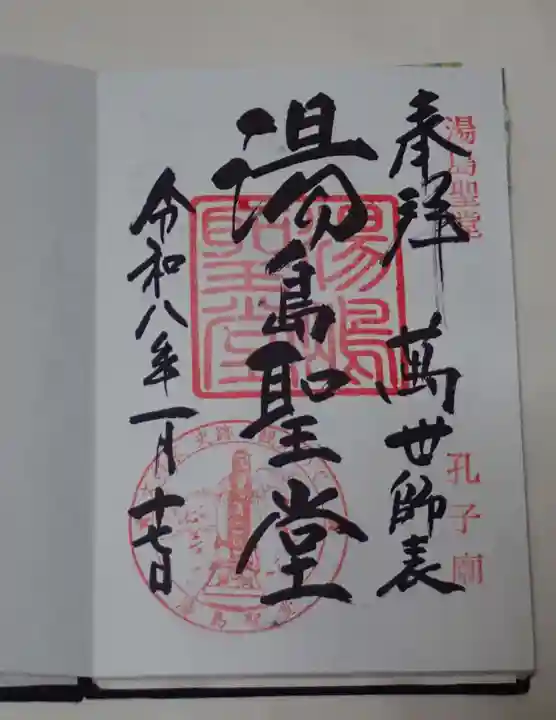 湯島聖堂
孔子廟
奉拝 萬世師表
湯島聖堂
令和八年一月十七日
湯島聖堂
湯島聖堂